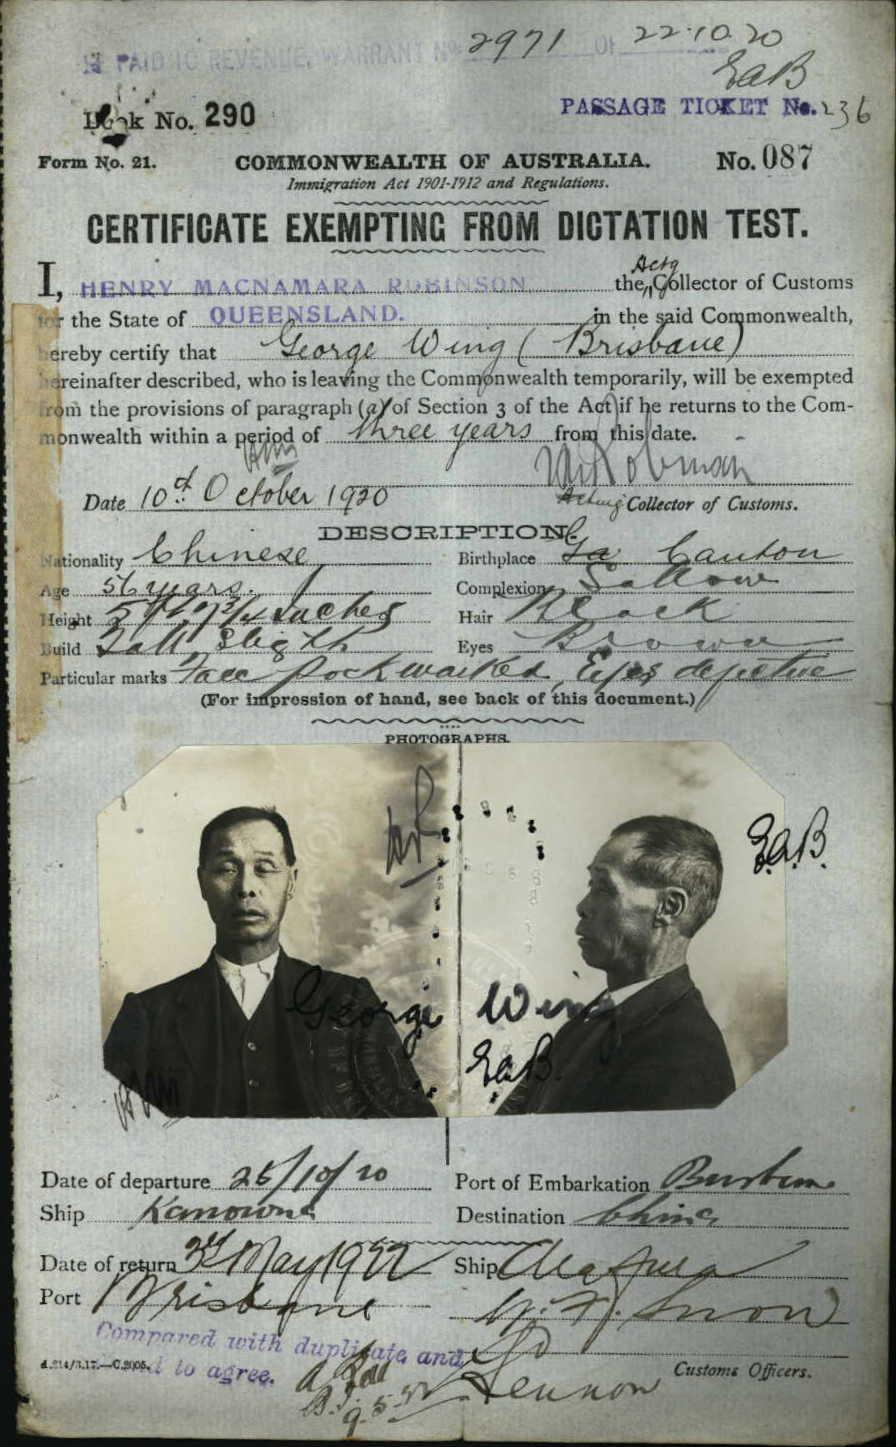 PAID TO REVENUE, WARRANT No 2971 OF 22.10.20
EaB
Book No. 290
PASSAGE TICKET No. 236
Form No. 21.
COMMONWEALTH OF AUSTRALIA.
No. 087
Immigration Act 1901-1912 and Regulations.
CERTIFICATE EXEMPTING FROM DICTATION TEST.
I, HENRY MACNAMARA ROBINSON the Actg Collector of Customs
for the State of QUEENSLAND. in the said Commonwealth,
hereby certify that George Wing (Brisbane)
hereinafter described, who is leaving the Commonwealth temporarily, will be exempted
from the provisions of paragraph (a) of Section 3 of the Act if he returns to the Com-
monwealth within a period of three years from this date.
Date 10th October 1920
Acting Collector of Customs.
DESCRIPTION.
Nationality Chinese
Birthplace Canton
Age 56 years.
Complexion Sallow
Height 5 ft 7 3/4 Inches
Hair Black
Build Tall Slight
Eyes Brown
Particular marks Face pock marked, Eyes defective
(For impression of hand, see back of this document.)
PHOTOGRAPHS.
HR
EaB.
George Wing
EaB.
Date of departure 25/10/20
Port of Embarkation Brisbane
Ship Kanowna
Destination China
Date of return 3rd May 1922
Ship Arafura
Port Brisbane
Compared with duplicate and
to agree.
9.5.22
d.214/3.17.—C.2005.
Customs Officers.